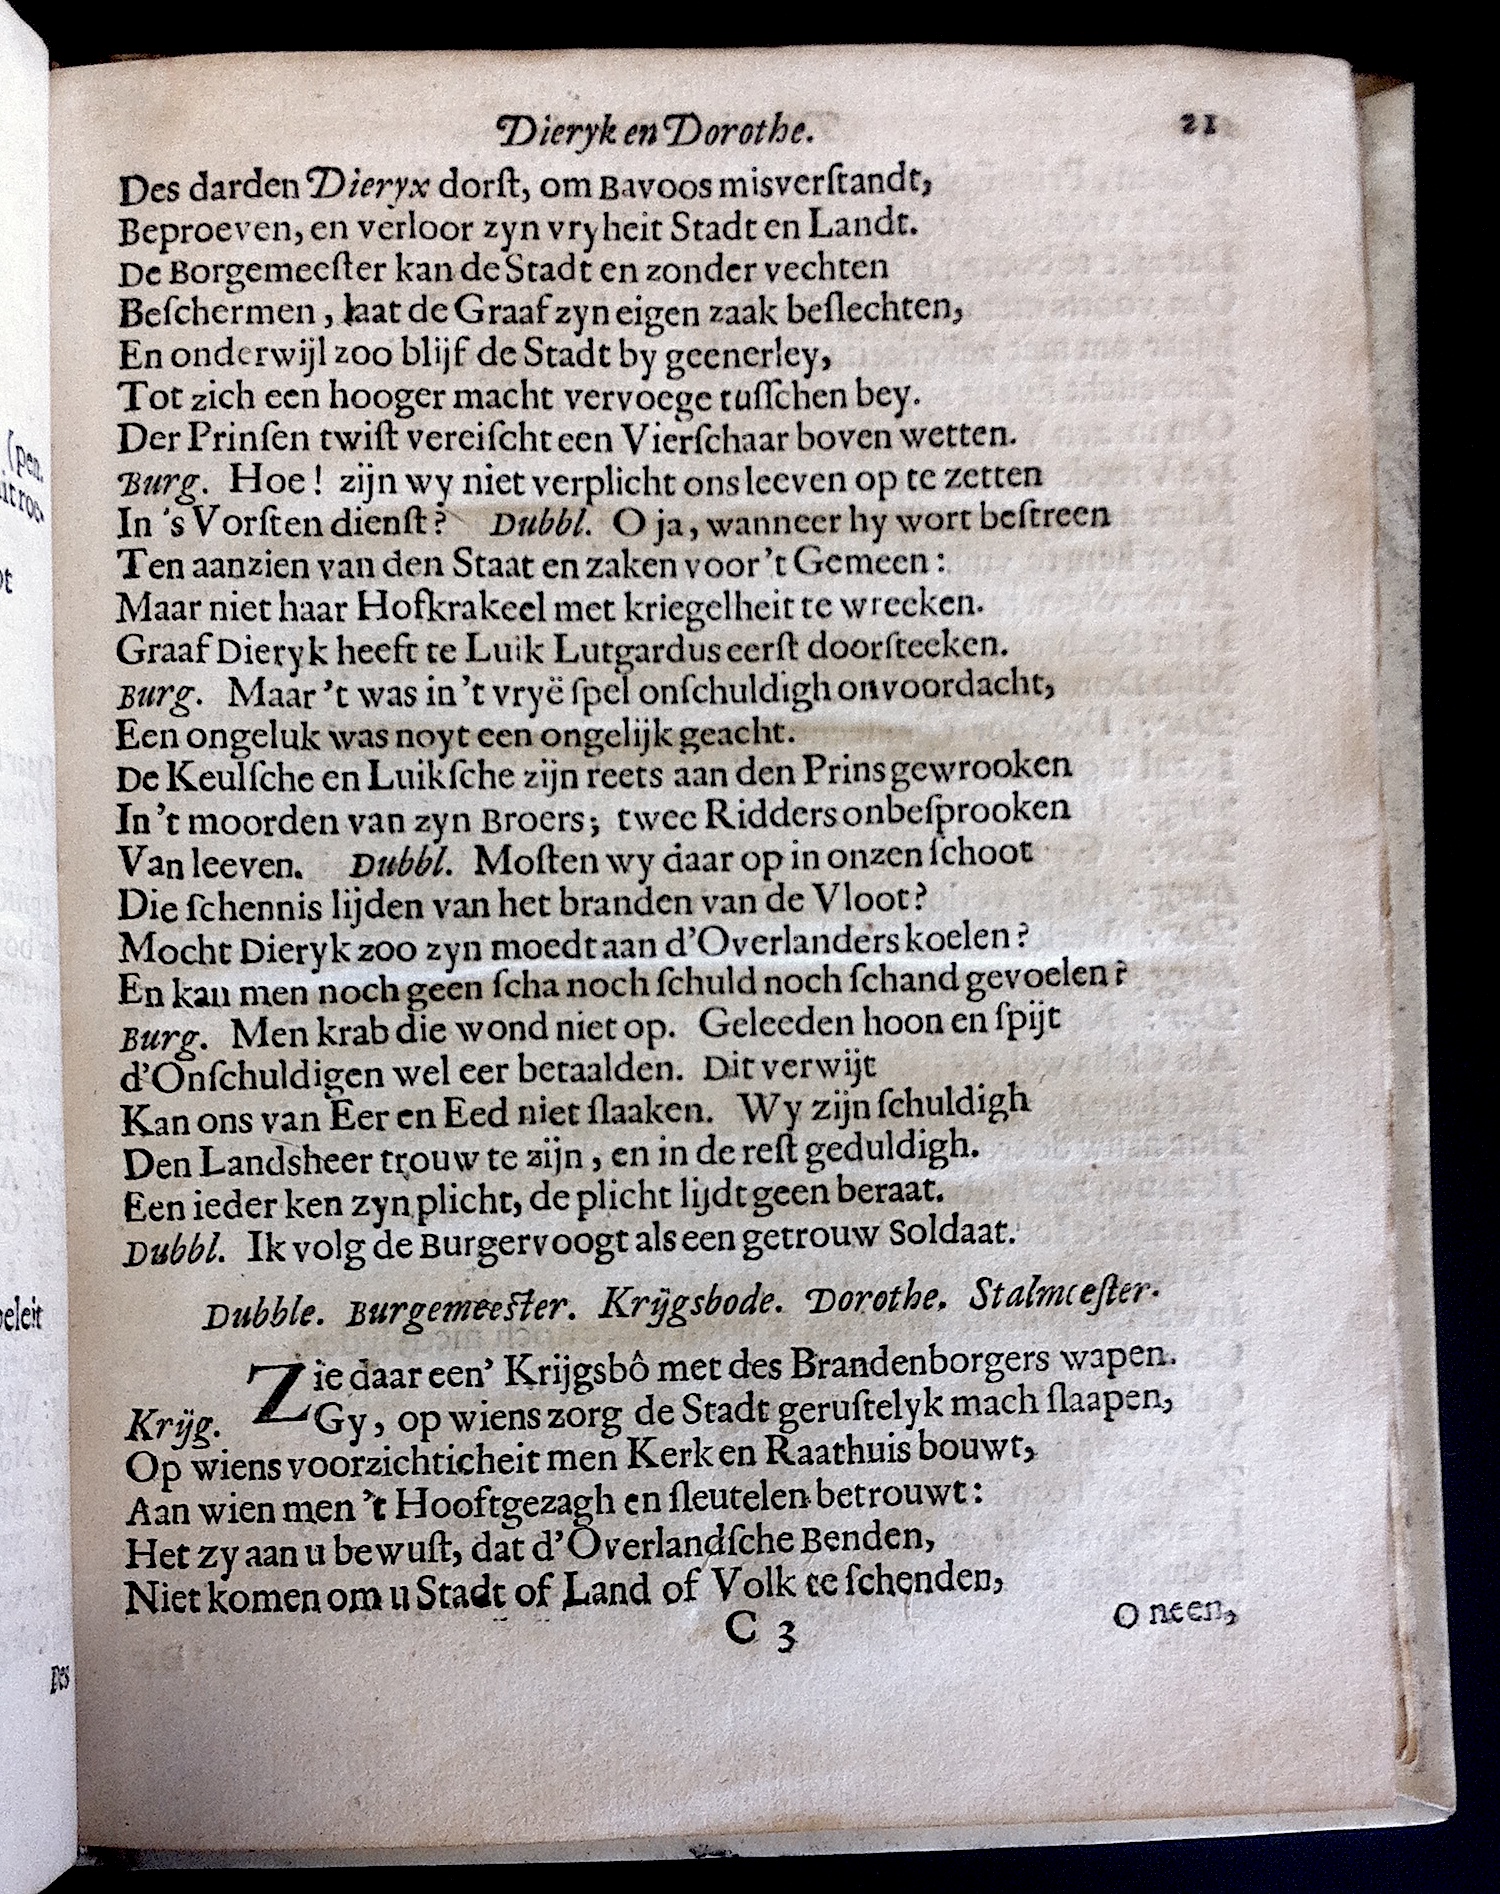 Dieryk en Dorothe. 21
Des darden Dieryx dorſt, om Bavoos misverſtandt,
Beproeven, en verloor zyn vryheit Stadt en Landt.
De Borgemeeſter kan de Stadt en zonder vechten
Beſchermen, laat de Graaf zyn eigen zaak beſlechten,
En onderwijl zoo blijf de Stadt by geenerley,
Tot zich een hooger macht vervoege tuſſchen bey.
Der Prinſen twiſt vereiſcht een Vierſchaar boven wetten.
Burg. Hoe! zijn wy niet verplicht ons leeven op te zetten
In 's Vorſten dienſt? Dubbl. O ja, wanneer hy wort beſtreen
Ten aanzien van den Staat en zaken voor 't Gemeen:
Maar niet haar Hofkrakeel met kriegelheit te wreeken.
Graaf Dieryk heeft te Luik Lutgardus eerſt doorſteeken.
Burg. Maar 't was in 't vryë ſpel onſchuldigh onvoordacht,
Een ongeluk was noyt een ongelijk geacht.
De Keulſche en Luikſche zijn reets aan den Prins gewrooken
In 't moorden van zyn Broers; twee Ridders onbeſprooken
Van leeven. Dubbl. Moſten wy daar op in onzen ſchoot
Die ſchennis lijden van het branden van de Vloot?
Mocht Dieryk zoo zyn moedt aan d'Overlanders koelen?
En kan men noch geen ſcha noch ſchuld noch ſchand gevoelen?
Burg. Men krab die wond niet op. Geleeden hoon en ſpijt
d'Onſchuldigen wel eer betaalden. Dit verwijt
Kan ons van Eer en Eed niet ſlaaken. Wy zijn ſchuldigh
Den Landsheer trouw te zijn, en in de reſt geduldigh.
Een ieder ken zyn plicht, de plicht lijdt geen beraat.
Dubbl. Ik volg de Burgervoogt als een getrouw Soldaat.
Dubble. Burgemeeſter. Krijgsbode. Dorothe. Stalmeeſter.
Zie daar een' Krijgsbô met des Brandenborgers wapen.
Krijg. Gy, op wiens zorg de Stadt geruſtelyk mach ſlaapen,
Op wiens voorzichticheit men Kerk en Raathuis bouwt,
Aan wien men 't Hooftgezagh en ſleutelen betrouwt:
Het zy aan u bewuſt, dat d'Overlandſche Benden,
Niet komen om u Stadt of Land of Volk te ſchenden,
C 3 O neen,
(pen.
itroe.
ot
beleit
Des